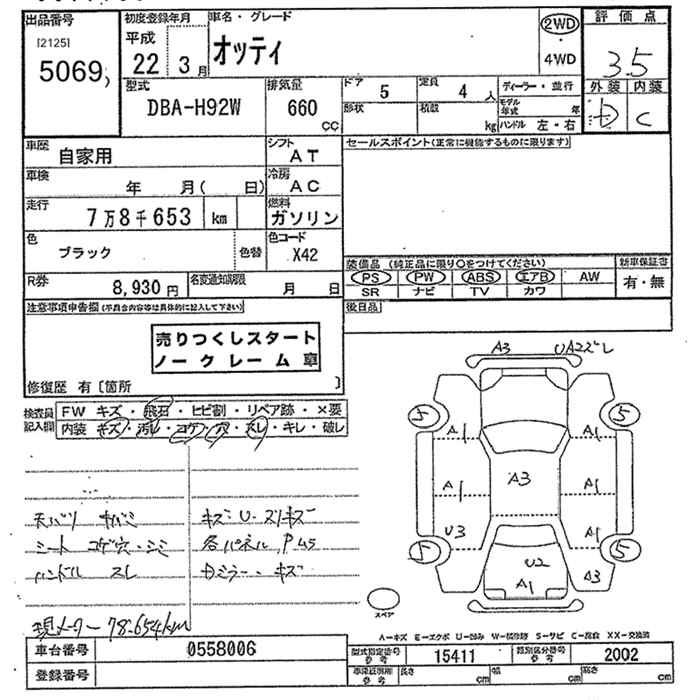 出品番号 初度登録年月 車名・グレード 2WD 評価点
[2125] 平成
5069 22 3月 オッティ 4WD 3.5
型式 排気量 ドア 5 定員 4 人 ディーラー・並行 外装 内装
DBA-H92W 660 cc 形状 積載 kg モデル年式 年 D C
ハンドル 左・右
車歴 自家用 シフト AT セールスポイント(正常に機能するものに限ります)
車検 年 月( 日) 冷房 AC
走行 7万8千653 km 燃料 ガソリン
色 ブラック 色替 色コード X42
装備品 (純正品に限り○をつけてください) 新車保証書
PS PW ABS エアB AW 有・無
SR ナビ TV カワ
R券 8,930円 名変通知期限 月 日
注意事項申告欄(不具合内容等は具体的に記入して下さい) 後日品
売りつくしスタート
ノークレーム車
修復歴 有〔箇所 〕
検査員記入欄 FW キズ・飛石・ヒビ割・リペア跡・×要
内装 キズ・汚レ・コゲ・穴・スレ・キレ・破レ
A3 UA22ビレ
5 5
A1 A1
A3
A1 A1
U3 A1
5 5
U2
A1 A3
天バリ キバミ キズ・U・スリキズ
シート コゲ穴・シミ 各パネル、P.45
ハンドル スレ Dミラー・キズ
現メーター 78.654km
スペア
A−キズ E−エクボ U−凹み W−補修跡 S−サビ C−腐食 XX−交換済
車台番号 0558006 型式指定番号 参考 15411 類別区分番号 参考 2002
登録番号 車庫証明用 参考 長さ cm 幅 cm 高さ cm